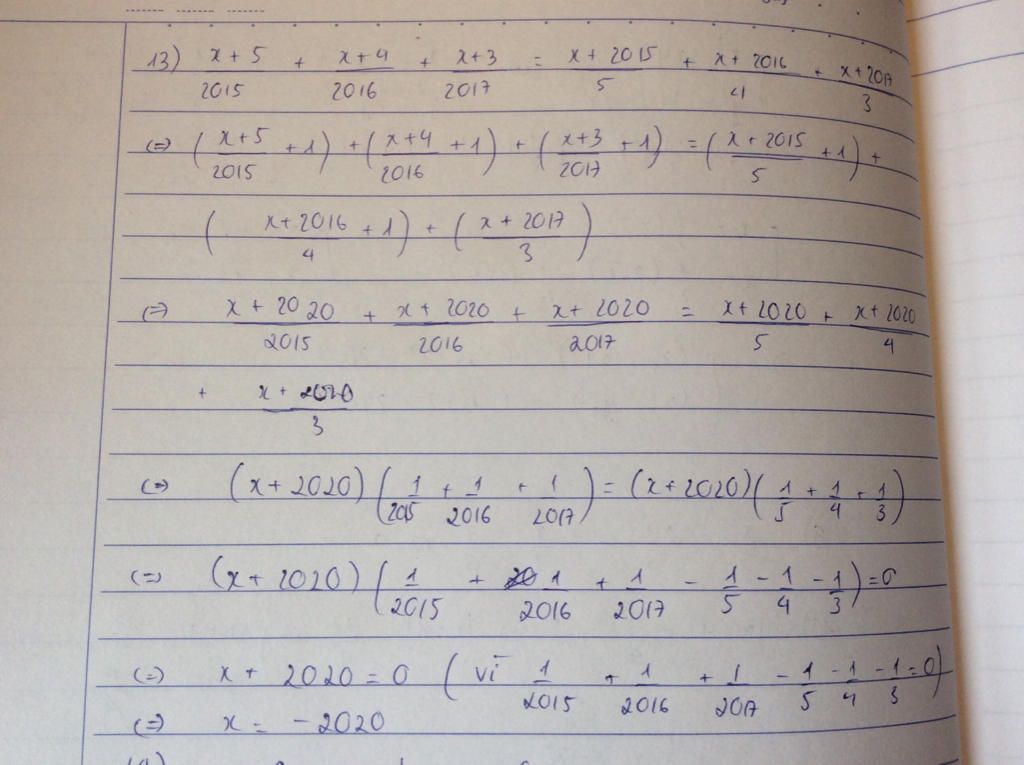 13) (x+5)/2015 + (x+4)/2016 + (x+3)/2017 = (x+2015)/5 + (x+2016)/4 + (x+2017)/3
(=) ((x+5)/2015 + 1) + ((x+4)/2016 + 1) + ((x+3)/2017 + 1) = ((x+2015)/5 + 1) +
((x+2016)/4 + 1) + ((x+2017)/3)
(=) (x+2020)/2015 + (x+2020)/2016 + (x+2020)/2017 = (x+2020)/5 + (x+2020)/4
+ (x+2020)/3
(=) (x+2020)(1/2015 + 1/2016 + 1/2017) = (x+2020)(1/5 + 1/4 + 1/3)
(=) (x+2020)(1/2015 + 1/2016 + 1/2017 - 1/5 - 1/4 - 1/3) = 0
(=) x + 2020 = 0 (vì 1/2015 + 1/2016 + 1/2017 - 1/5 - 1/4 - 1/3 = 0)
(=) x = -2020